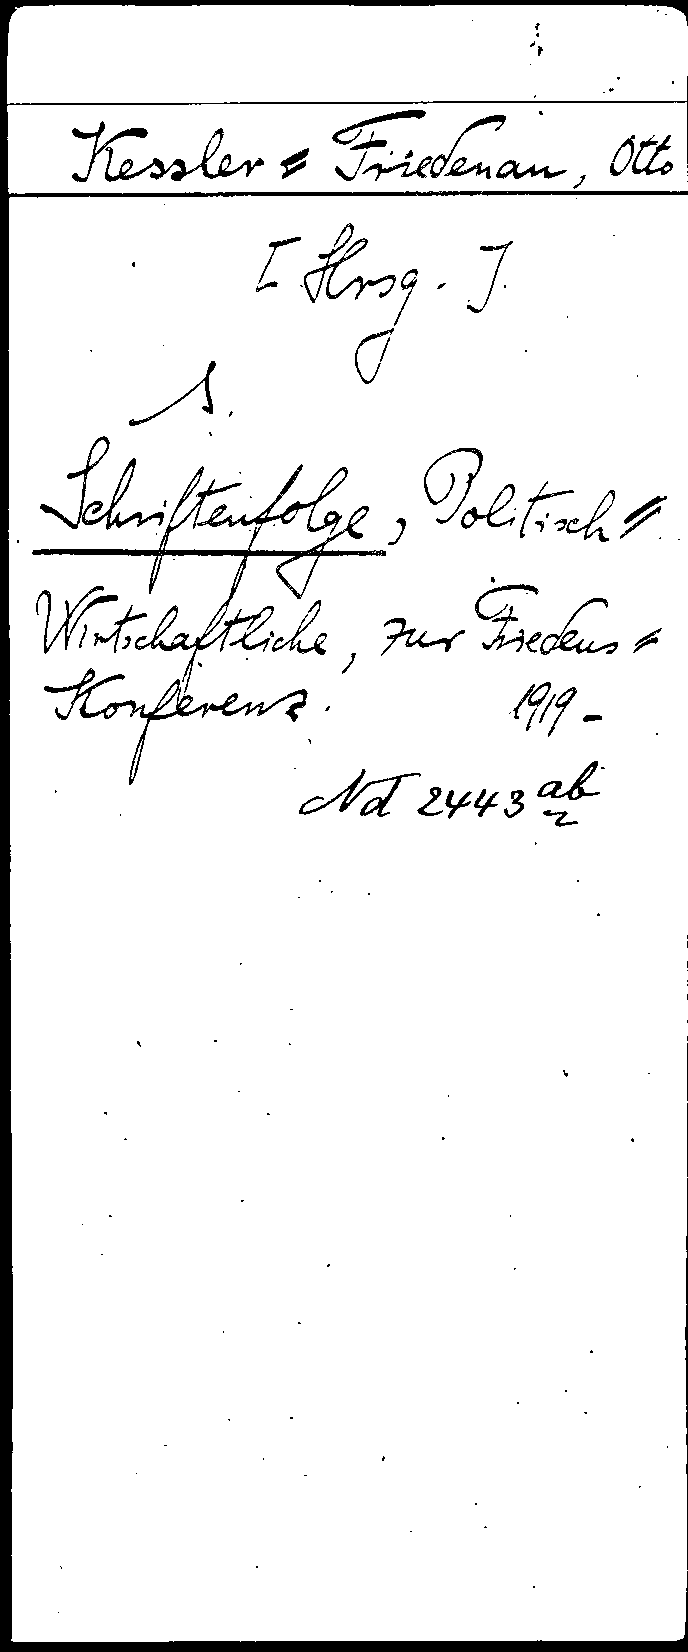 Kessler = Friedenau, Otto
[Hrsg.].
s.
Schriftenfolge, Politisch=
Wirtschaftliche, zur Friedens=
Konferenz. 1919-
Nd 2443 ab